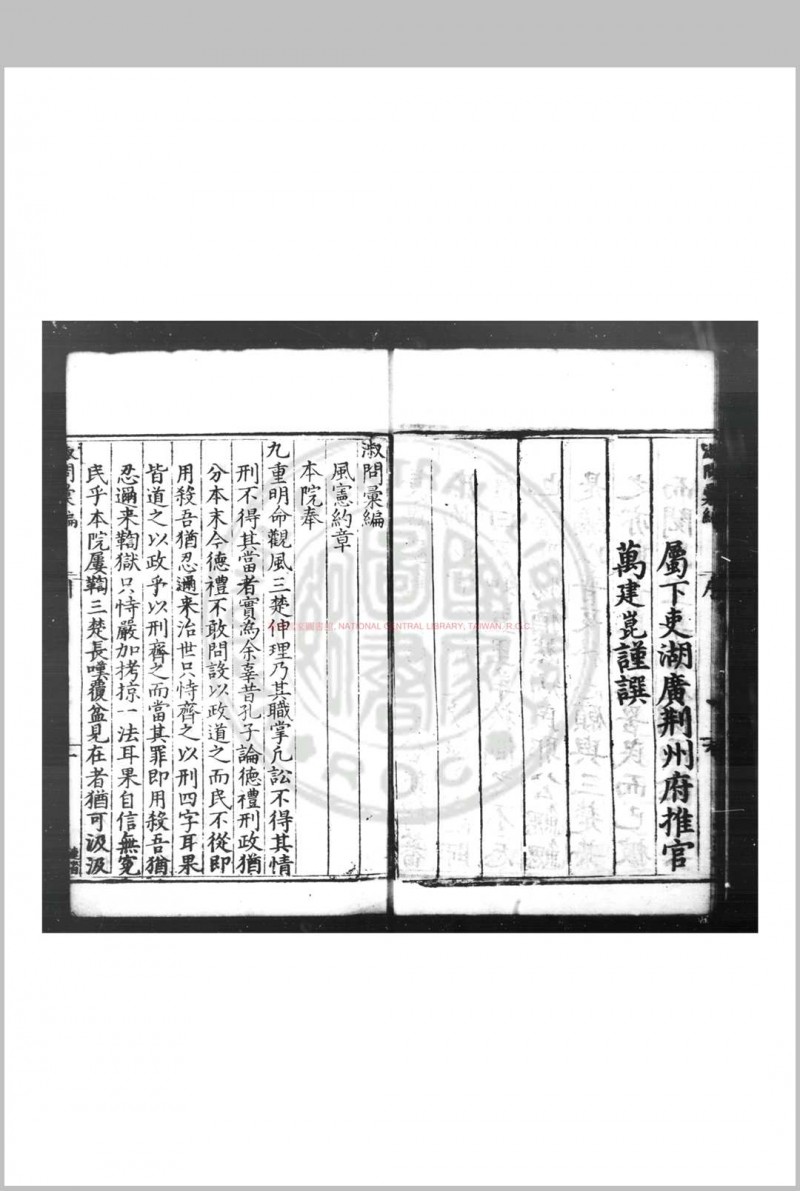 屬下吏湖廣荆州府推官
萬建崑謹譔
淑問彙編
風憲約章
本院奉
九重明命觀風三楚伸理乃其職掌凢訟不得其情
刑不得其當者實為余辜昔孔子論德禮刑政猶
分本末今德禮不敢問設以政道之而民不從即
用殺吾猶忍邇来治世只恃齊之以刑四字耳果
皆道之以政乎以刑齊之而當其罪即用殺吾猶
忍邇来鞫獄只恃嚴加拷掠一法耳果自信無寃
民乎本院屢鞫三楚長嘆覆盆見在者猶可汲汲
NATIONAL CENTRAL LIBRARY, TAIWAN R.O.C.